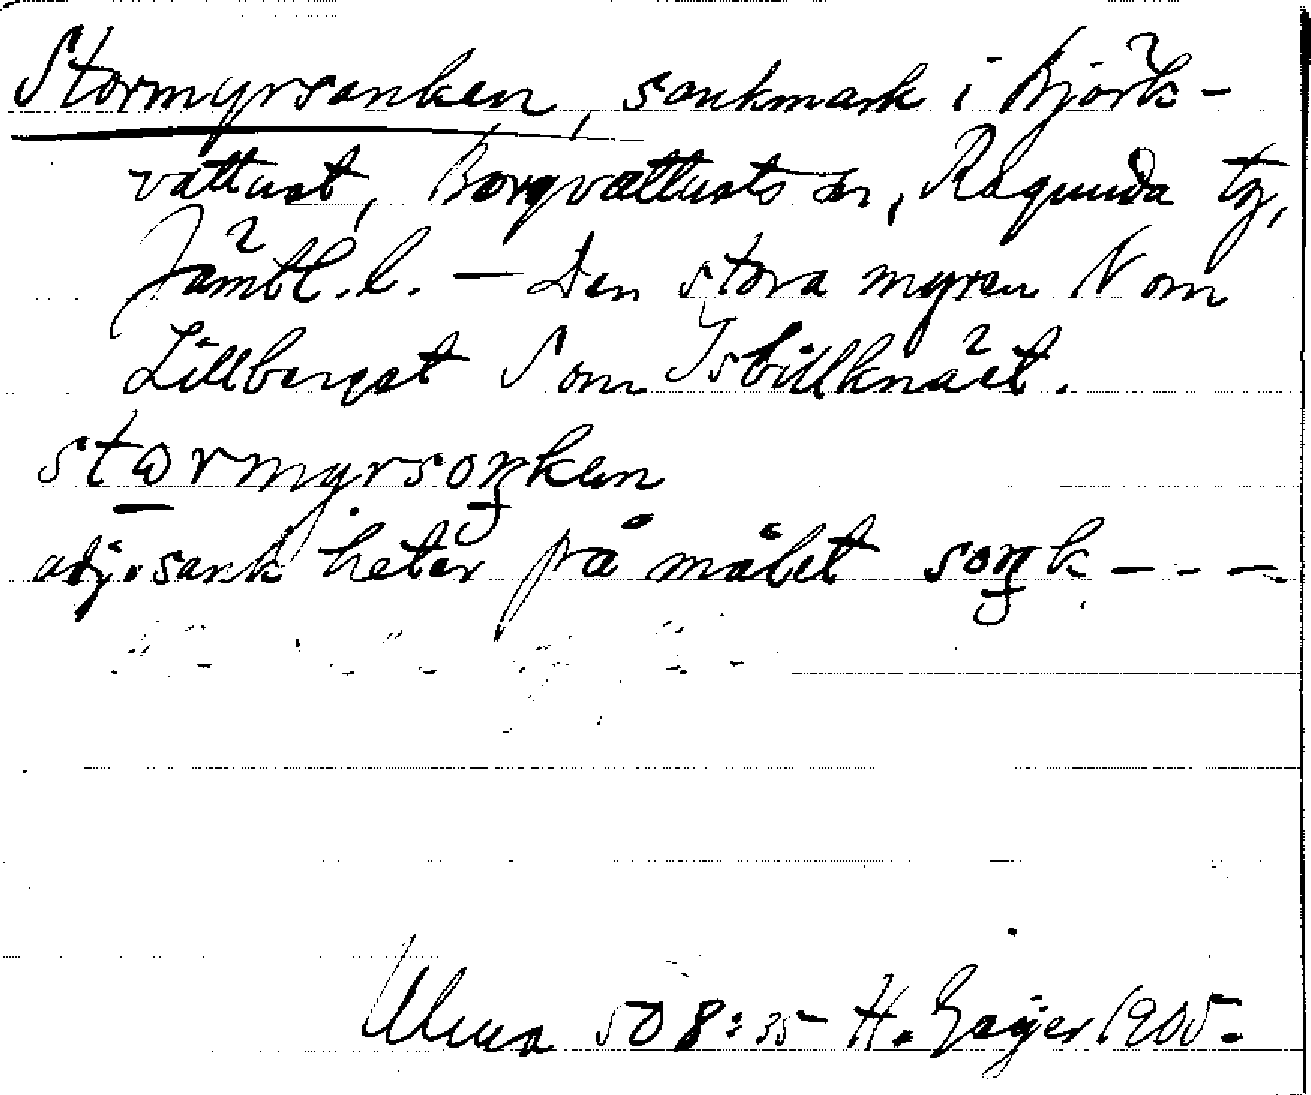 Stormyrsanken, sankmark i Björk-
vattnet, Borgvattnets sn, Ragunda tg,
Jämtl. l. — Den stora myren N om
Lillberget S om Isbillknäet.
stormyrsoŋken
adj. sank heter på målet soŋk - - -
Ulma 508:35 H. Geijer 1905.